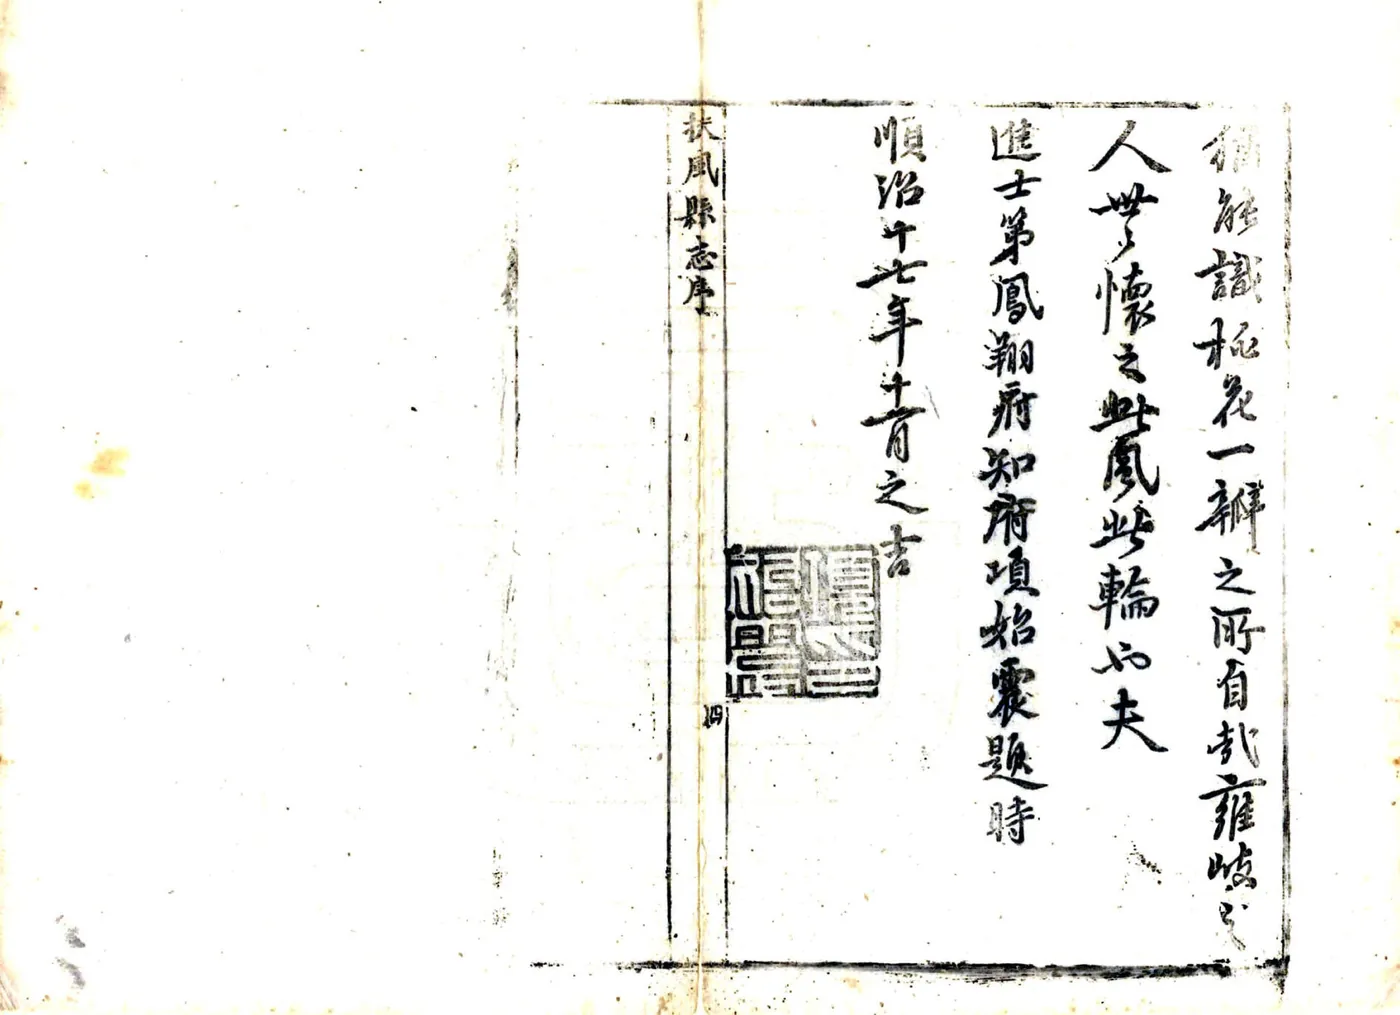 猶能識極花一瓣之所自哉雍岐之
人世懷之此鳳此輪也夫
進士第鳳翔府知府項始震題時
順治十七年十一月之吉
扶風縣志序
四